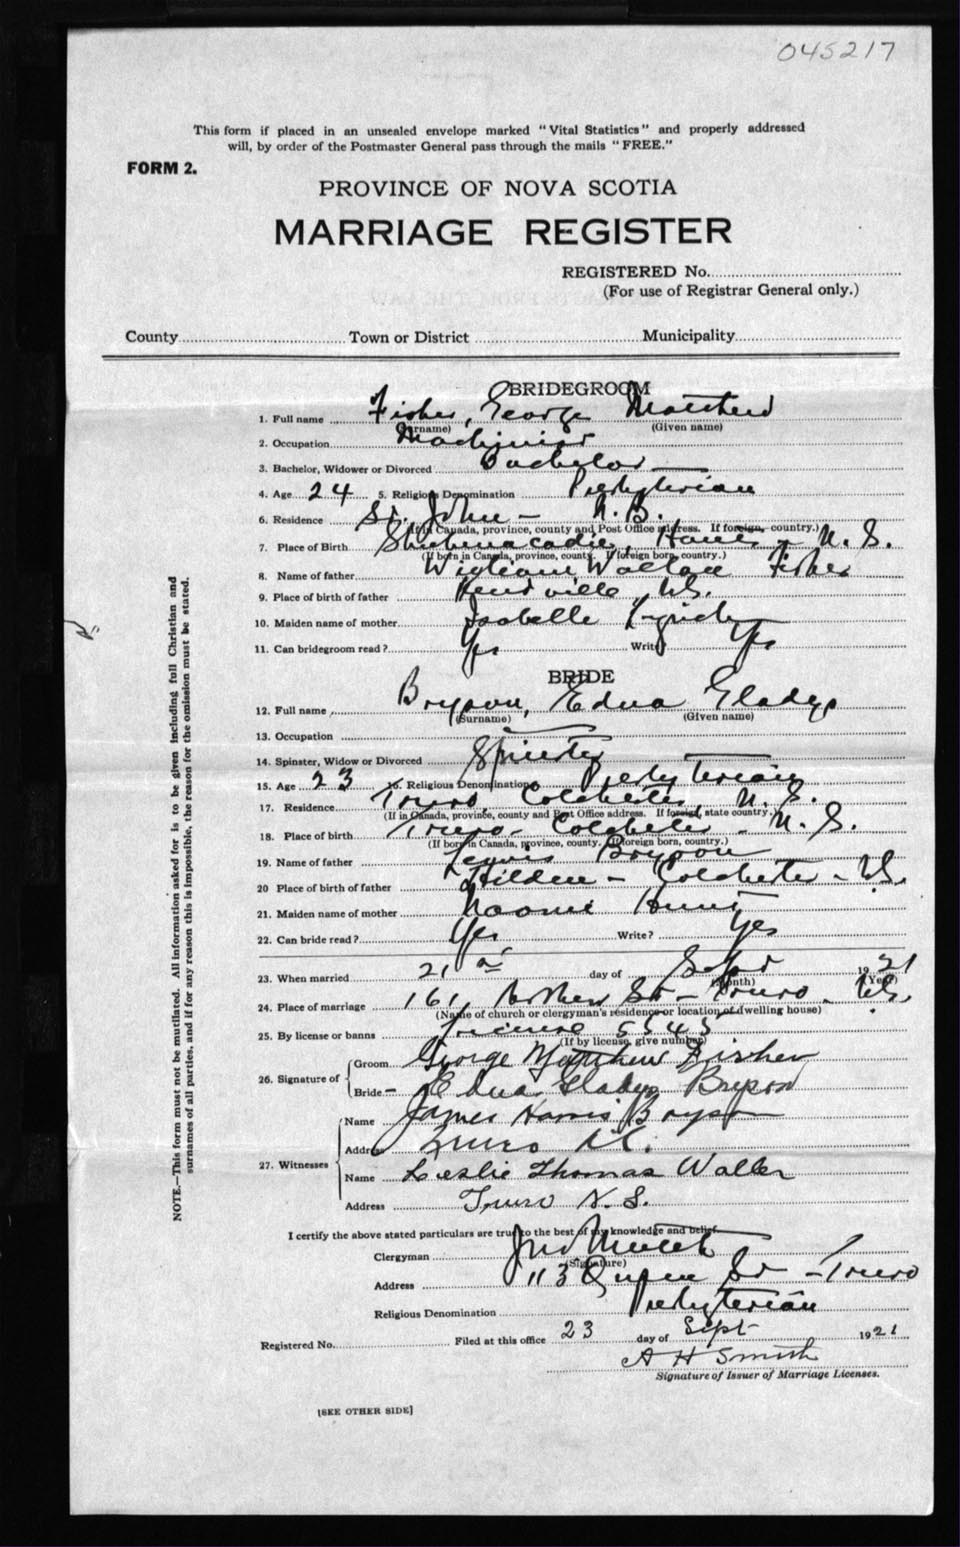 045217
This form if placed in an unsealed envelope marked "Vital Statistics" and properly addressed
will, by order of the Postmaster General pass through the mails "FREE."
FORM 2.
PROVINCE OF NOVA SCOTIA
MARRIAGE REGISTER
REGISTERED No.
(For use of Registrar General only.)
County Town or District Municipality
BRIDEGROOM
1. Full name Fisher, George Matthew
(Surname) (Given name)
2. Occupation Machinist
3. Bachelor, Widower or Divorced Bachelor
4. Age 24 5. Religious Denomination Presbyterian
6. Residence St. John - N.B.
(If in Canada, province, county and Post Office address. If foreign, country.)
7. Place of Birth Shubenacadie, Hants - N.S.
(If born in Canada, province, county. If foreign born, country.)
8. Name of father William Wallace Fisher
9. Place of birth of father Kentville N.S.
10. Maiden name of mother Isabelle
11. Can bridegroom read? Yes Write Yes
BRIDE
12. Full name Bryson, Edna Gladys
(Surname) (Given name)
13. Occupation
14. Spinster, Widow or Divorced Spinster
15. Age 23 16. Religious Denomination Presbyterian
17. Residence Truro, Colchester, N.S.
(If in Canada, province, county and Post Office address. If foreign, state country.)
18. Place of birth Truro - Colchester - N.S.
(If born in Canada, province, county. If foreign born, country.)
19. Name of father Lewis Bryson
20 Place of birth of father Hilden - Colchester - N.S.
21. Maiden name of mother Naomi Hunt
22. Can bride read? Yes Write? Yes
23. When married 21st day of Sept 1921
(Month) (Year)
24. Place of marriage 161, Arthur St - Truro - N.S.
(Name of church or clergyman's residence or location of dwelling house)
25. By license or banns License 5545
(If by license, give number)
26. Signature of Groom George Matthew Fisher
Bride - Edna Gladys Bryson
27. Witnesses
Name James Harris Bryson
Address Truro N.S.
Name Leslie Thomas Waller
Address Truro N.S.
I certify the above stated particulars are true to the best of my knowledge and belief.
Clergyman Jno
(Signature)
Address 113 Queen St - Truro
Religious Denomination Presbyterian
Registered No. Filed at this office 23 day of Sept 1921
A H Smith
Signature of Issuer of Marriage Licenses.
[SEE OTHER SIDE]
NOTE.—This form must not be mutilated. All information asked for is to be given including full Christian and
surnames of all parties, and if for any reason this is impossible, the reason for the omission must be stated.